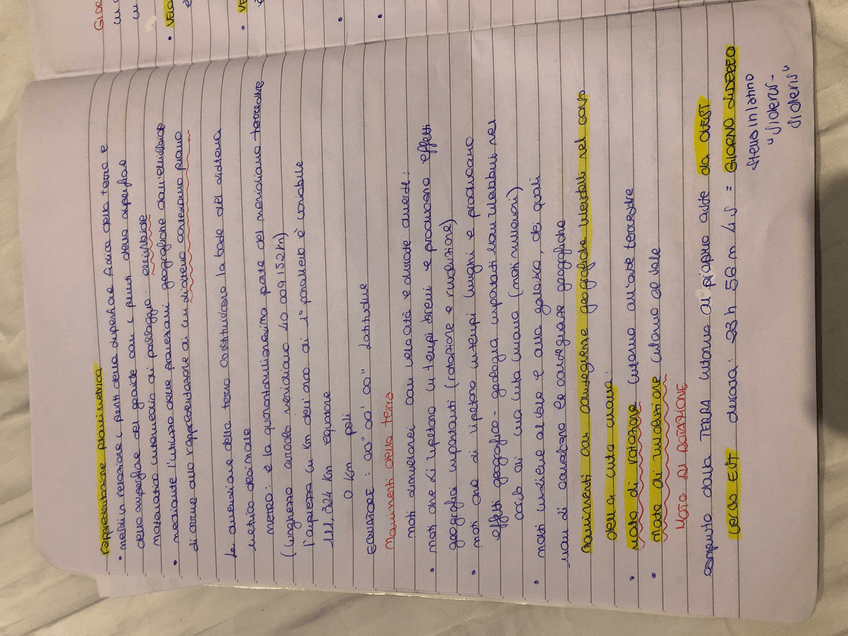 rappresentazione planimetrica
• mette in relazione i punti della superficie fisica della terra e
della superficie del geoide con i punti della superficie
matematica intermedia di passaggio: ellissoide
• mediante l'utilizzo delle proiezioni geografiche dall'ellissoide
si arriva alla rappresentazione di un sistema cartesiano piano
le dimensione della terra costituiscono la base del sistema
metrico decimale
METRO: è la quarantamilionesima parte del meridiano terrestre
(lunghezza circolo meridiano 40 009 152 km)
l'ampiezza in km dell'arco di 1° parallelo è variabile
111,324 km equatore
0 km poli
EQUATORE: 00° 00' 00" latitudine
Movimenti della terra
moti simultanei con velocità e durate diverse:
• moti che si ripetono in tempi brevi e producono effetti
geografici importanti (rotazione e rivoluzione)
• moti che si ripetono in tempi lunghi e producono
effetti geografici - geologici importanti non rilevabili nel
corso di una vita umana (moti millenari)
• moti insieme al sole e alla galassia dei quali
non si conoscono le conseguenze geografiche
movimenti con conseguenze geografiche rilevabili nel corso
della vita umana:
• moto di rotazione intorno all'asse terrestre
• moto di rivoluzione intorno al sole
MOTO DI ROTAZIONE
compiuto dalla TERRA intorno al proprio asse da OVEST
verso EST durata: 23 h 56 m 4 s = GIORNO SIDEREO
stella in latino
"sidera-
sideris"